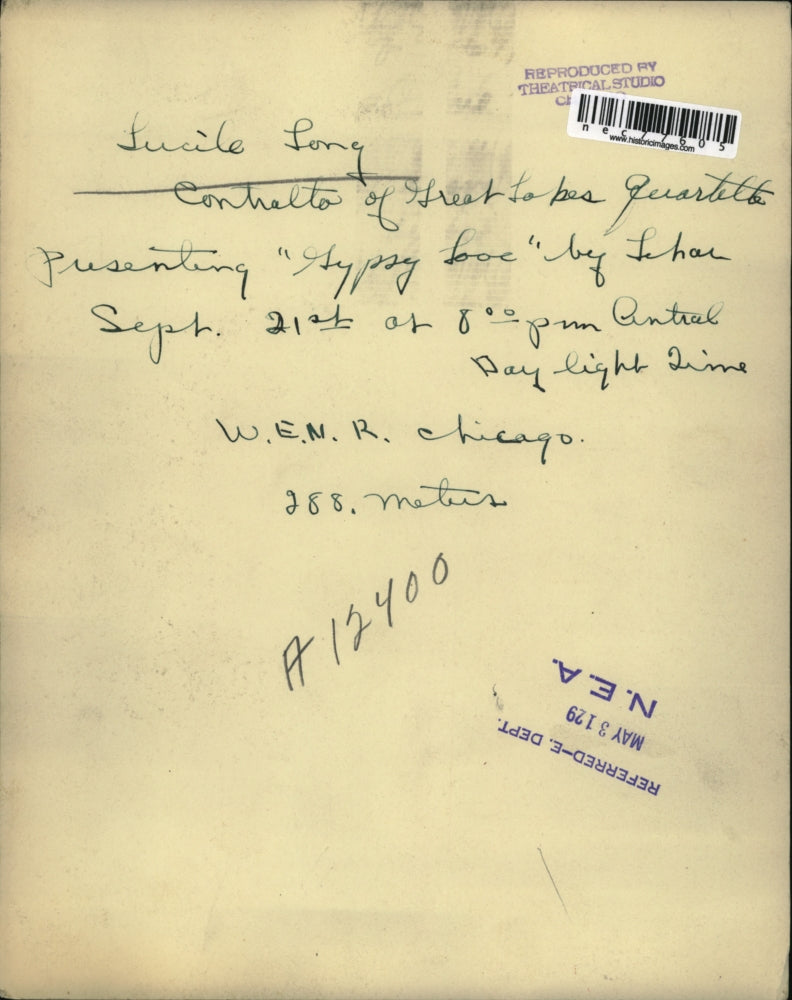 REPRODUCED BY
THEATRICAL STUDIO
www.historicimages.com
Lucile Long
Contralto of Great Lakes Quartette
Presenting "Gypsy Love" by Lehar
Sept. 21st at 8°° pm Central
Day light Time
W.E.N.R. Chicago.
288. Meters
A12400
N.E.A.
MAY 31 29
REFERRED-E. DEPT.